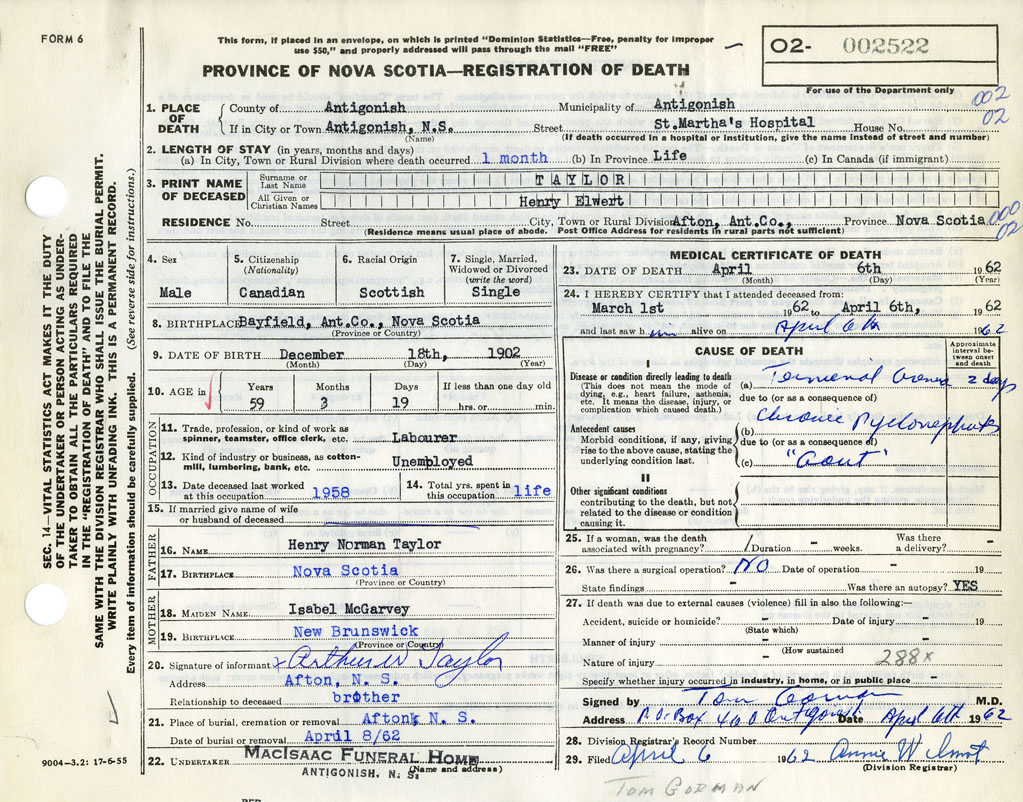 FORM 6
This form, if placed in an envelope, on which is printed "Dominion Statistics—Free, penalty for improper
use $50," and properly addressed will pass through the mail "FREE"
O2- 002522
For use of the Department only
PROVINCE OF NOVA SCOTIA—REGISTRATION OF DEATH
002
02
1. PLACE OF DEATH
County of Antigonish Municipality of Antigonish
If in City or Town Antigonish, N.S. Street St.Martha's Hospital House No.
(Name) (If death occurred in a hospital or institution, give the name instead of street and number)
2. LENGTH OF STAY (in years, months and days)
(a) In City, Town or Rural Division where death occurred 1 month (b) In Province Life (c) In Canada (if immigrant)
3. PRINT NAME OF DECEASED
Surname or Last Name TAYLOR
All Given or Christian Names Henry Elwert
RESIDENCE No. Street City, Town or Rural Division Afton, Ant.Co., Province Nova Scotia
(Residence means usual place of abode. Post Office Address for residents in rural parts not sufficient)
000
02
SEC. 14—VITAL STATISTICS ACT MAKES IT THE DUTY
OF THE UNDERTAKER OR PERSON ACTING AS UNDER-
TAKER TO OBTAIN ALL THE PARTICULARS REQUIRED
IN THE "REGISTRATION OF DEATH" AND TO FILE THE
SAME WITH THE DIVISION REGISTRAR WHO SHALL ISSUE THE BURIAL PERMIT.
WRITE PLAINLY WITH UNFADING INK. THIS IS A PERMANENT RECORD.
Every item of information should be carefully supplied. (See reverse side for instructions.)
4. Sex
Male
5. Citizenship
(Nationality)
Canadian
6. Racial Origin
Scottish
7. Single, Married,
Widowed or Divorced
(write the word)
Single
8. BIRTHPLACE Bayfield, Ant.Co., Nova Scotia
(Province or Country)
9. DATE OF BIRTH December 18th, 1902
(Month) (Day) (Year)
10. AGE in
Years Months Days If less than one day old
59 3 19 hrs. or min.
OCCUPATION
11. Trade, profession, or kind of work as
spinner, teamster, office clerk, etc. Labourer
12. Kind of industry or business, as cotton-
mill, lumbering, bank, etc. Unemployed
13. Date deceased last worked
at this occupation 1958
14. Total yrs. spent in
this occupation life
15. If married give name of wife
or husband of deceased
FATHER
16. NAME Henry Norman Taylor
17. BIRTHPLACE Nova Scotia
(Province or Country)
MOTHER
18. MAIDEN NAME Isabel McGarvey
19. BIRTHPLACE New Brunswick
(Province or Country)
20. Signature of informant x Arthur W Taylor
Address Afton, N. S.
Relationship to deceased brother
21. Place of burial, cremation or removal Afton, N. S.
Date of burial or removal April 8/62
22. UNDERTAKER MACISAAC FUNERAL HOME
ANTIGONISH, N. S. (Name and address)
9004-3.2: 17-6-55
MEDICAL CERTIFICATE OF DEATH
23. DATE OF DEATH April 6th 1962
(Month) (Day) (Year)
24. I HEREBY CERTIFY that I attended deceased from:
March 1st 1962 to April 6th, 1962
and last saw h im alive on April 6th 1962
CAUSE OF DEATH
Approximate
interval be-
tween onset
and death
I
Disease or condition directly leading to death
(This does not mean the mode of
dying, e.g., heart failure, asthenia,
etc. It means the disease, injury, or
complication which caused death.)
(a) Terminal Uremia 2 days
due to (or as a consequence of)
Antecedent causes
Morbid conditions, if any, giving
rise to the above cause, stating the
underlying condition last.
(b) Chronic Pyelonephritis
due to (or as a consequence of)
(c) "Gout"
II
Other significant conditions
contributing to the death, but not
related to the disease or condition
causing it.
25. If a woman, was the death
associated with pregnancy? / Duration - weeks. Was there
a delivery? -
26. Was there a surgical operation? NO Date of operation - 19
State findings - Was there an autopsy? YES
27. If death was due to external causes (violence) fill in also the following:—
Accident, suicide or homicide? - Date of injury - 19
(State which)
Manner of injury - (How sustained
Nature of injury - 288x
Specify whether injury occurred in industry, in home, or in public place -
Signed by Tom Gorman M.D.
Address P.O. Box 400 Antigonish Date April 6th 1962
28. Division Registrar's Record Number
29. Filed April 6 1962 Annie W
(Division Registrar)
TOM GORMAN